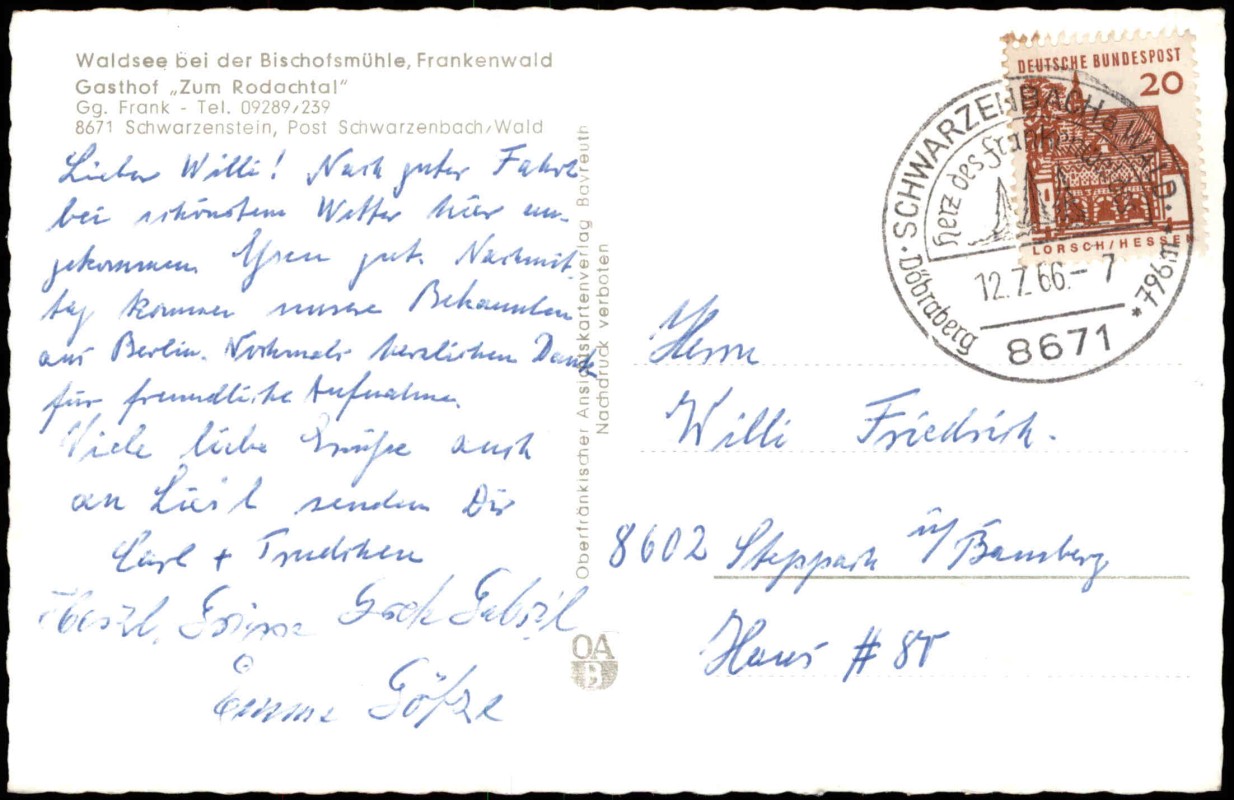 Waldsee bei der Bischofsmühle, Frankenwald
Gasthof „Zum Rodachtal"
Gg. Frank - Tel. 09289/239
8671 Schwarzenstein, Post Schwarzenbach/Wald
Lieber Willi! Nach guter Fahrt
bei schönstem Wetter hier an-
gekommen. Essen gut. Nachmit-
tag kommen unsere Bekannten
aus Berlin. Nochmals herzlichen Dank
für freundliche Aufnahme.
Viele liebe Grüße auch
an Liesl senden Dir
Carl + Trudchen
Herzl. Grüsse Gabriel
Emma Götze
Oberfränkischer Ansichtskartenverlag Bayreuth
Nachdruck verboten
OA
B
DEUTSCHE BUNDESPOST
20
LORSCH/HESSEN
SCHWARZENBACH a. WALD
Herz des Frankenwaldes
12.7.66.- 7
Döbraberg * 796m *
8671
Herrn
Willi Friedrich.
8602 Steppach ü/Bamberg
Haus # 80